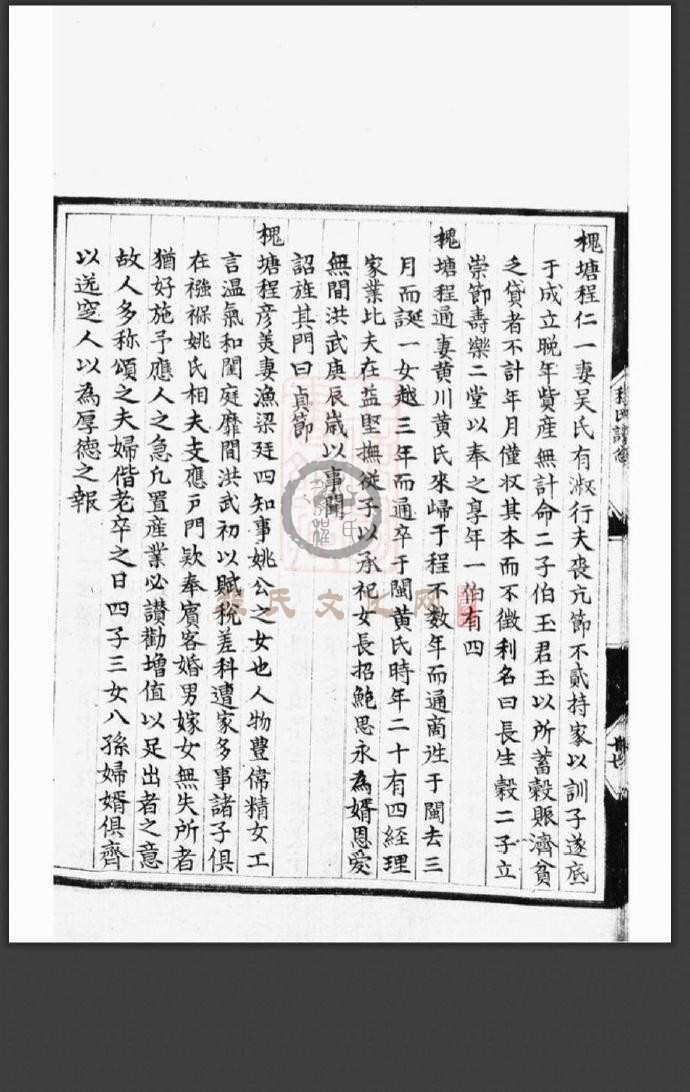 槐塘程仁一妻吴氏有淑行夫喪亢節不貳持家以訓子遂底
于成立晚年貲産無計命二子伯玉君玉以所蓄穀賑濟貧
乏貸者不計年月僅収其本而不徴利名曰長生穀二子立
崇節壽樂二堂以奉之享年一伯有四
槐塘程通妻黄川黄氏來歸于程不数年而通商逃于閩去三
月而誕一女越三年而通卒于閩黄氏時年二十有四經理
家業比夫在益堅撫從子以承祀女長招鮑思永為婿恩愛
無間洪武庚辰歳以事聞
詔旌其門曰貞節
槐塘程彦羙妻漁梁廷四知事姚公之女也人物豊偹精女工
言温氣和閨庭靡間洪武初以賦税差科遭家多事諸子俱
在襁褓姚氏相夫支應户門欵奉賓客婚男嫁女無失所者
猶好施予應人之急凢置産業必讃勸增值以足出者之意
故人多称頌之夫婦偕老卒之日四子三女八孫婦婿俱齊
以送窆人以為厚德之報
程氏文化网